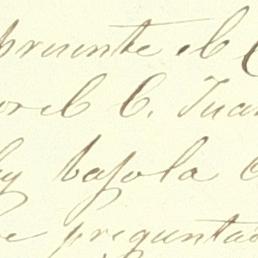 presente el C
por el C. Juan
ley bajola
se preguntado